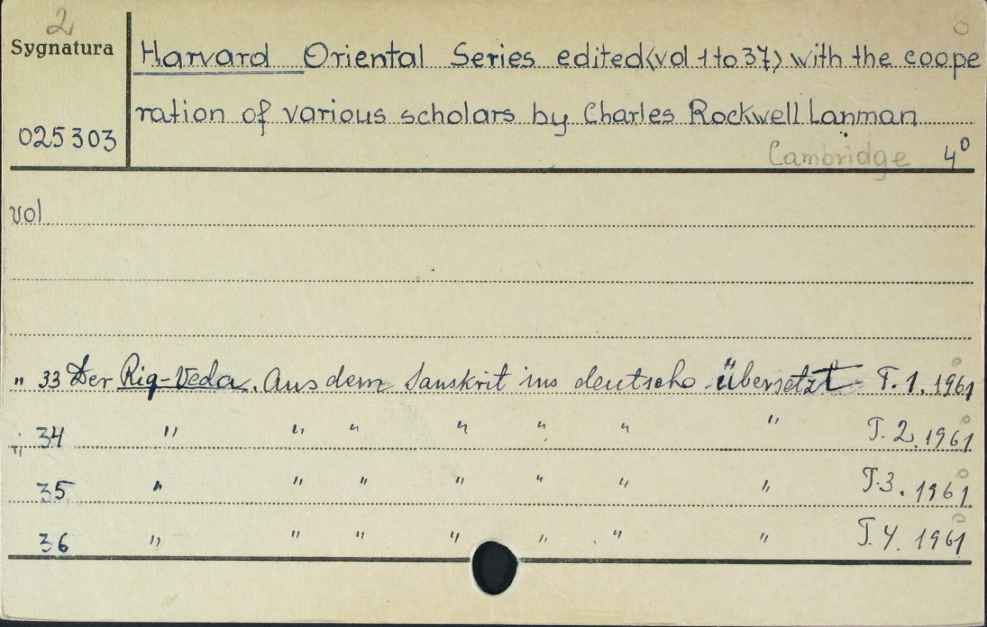 2
Sygnatura
025303
Harvard Oriental Series edited (vol 1 to 37) with the coope
ration of various scholars by Charles Rockwell Lanman
Cambridge 4°
vol
" 33 Der Rig-Veda. Aus dem Sanskrit ins deutsche Übersetzt T. 1. 1961
" 34 " " " " " " " T. 2. 1961
35 " " " " " " " T. 3. 1961
36 " " " " " " " T. 4. 1961